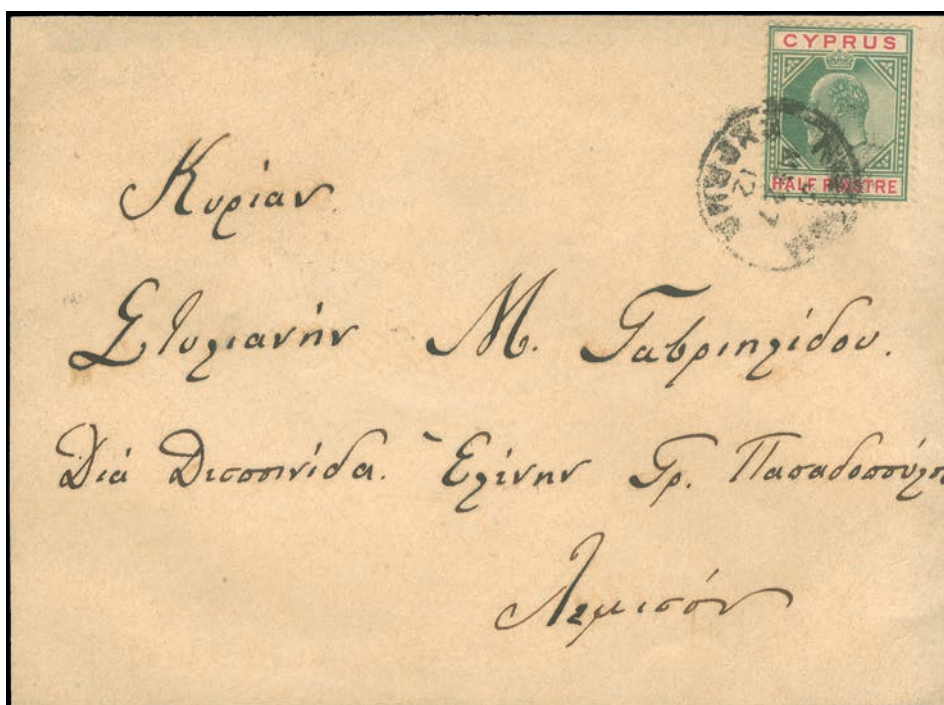 CYPRUS
HALF PIASTRE
Κυρίαν
Στυλιανήν Μ. Γαβριηλίδου.
Διά Δεσποινίδα. Ελένην Γρ. Παπαδοπούλου
Λεμισόν